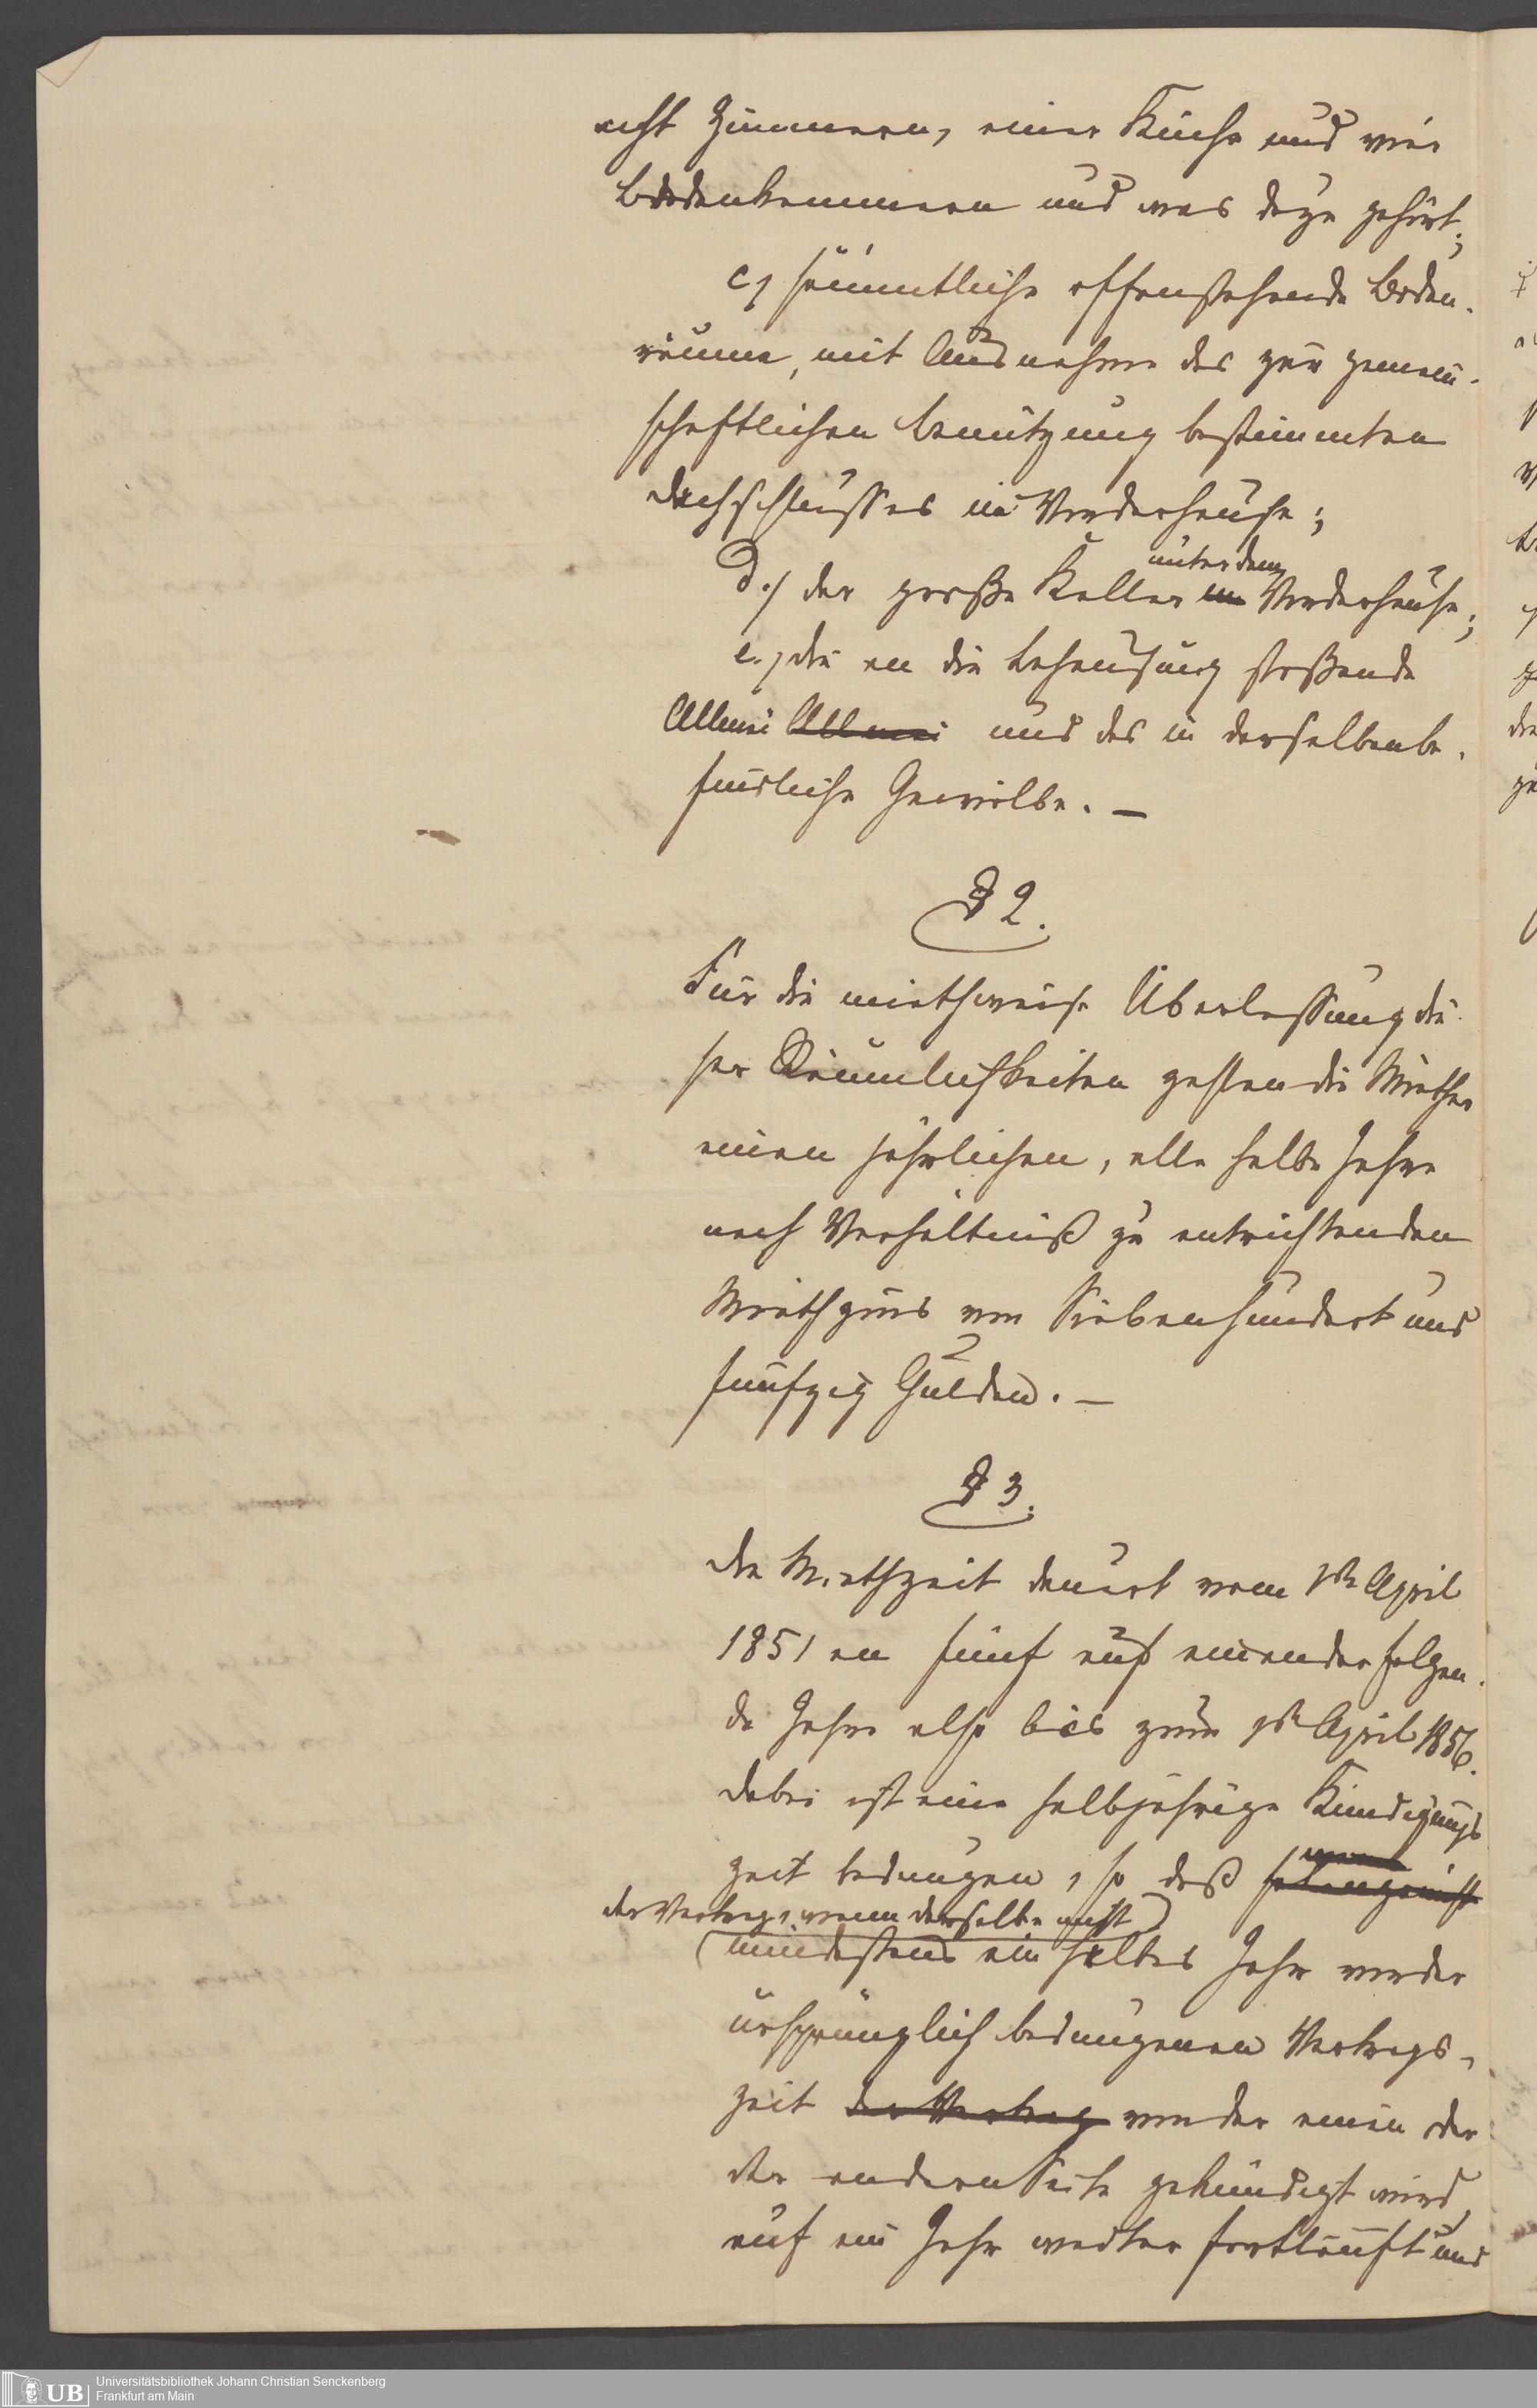 acht Zimmern, einer Küche und vier
Bodenkammern und was dazu gehört;
c) sämmtliche offenstehende Boden-
räume, mit Ausnahme des zur gemein-
schaftlichen Benutzung bestimmten
Dachschlusses im Vorderhause;
unter dem
d.) der große Keller im Vorderhause;
e.) die an die Behausung stoßende
Allmei Allmei und das in derselben be-
findliche Gewölbe. —
§ 2.
Für die miethweise Überlassung die-
ser Räumlichkeiten zahlen die Miether
einen jährlichen, alle halbe Jahre
nach Verhältniß zu entrichtenden
Miethzins von Siebenhundert und
fünfzig Gulden. —
§ 3.
Die Miethzeit dauert vom 1ten April
1851 an fünf auf einander folgen-
de Jahre also bis zum 1ten April 1856.
Dabei ist eine halbjährige Kündigungs
zeit bedungen, so daß
der Vertrag, wenn derselbe nicht
mindestens ein halbes Jahr vor der
ursprünglich bedungenen Vertrags-
zeit der Vertrag von der einen oder
der andern Seite gekündigt wird,
auf ein Jahr weiter fortläuft und
Universitätsbibliothek Johann Christian Senckenberg
Frankfurt am Main
UB